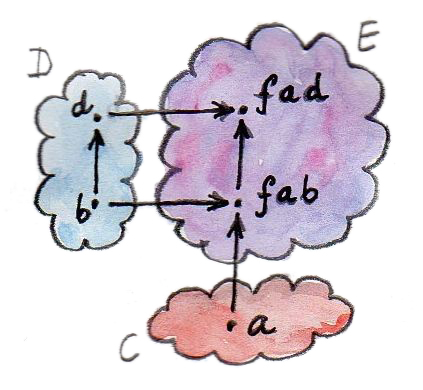 D
E
d
fad
b
fab
a
C